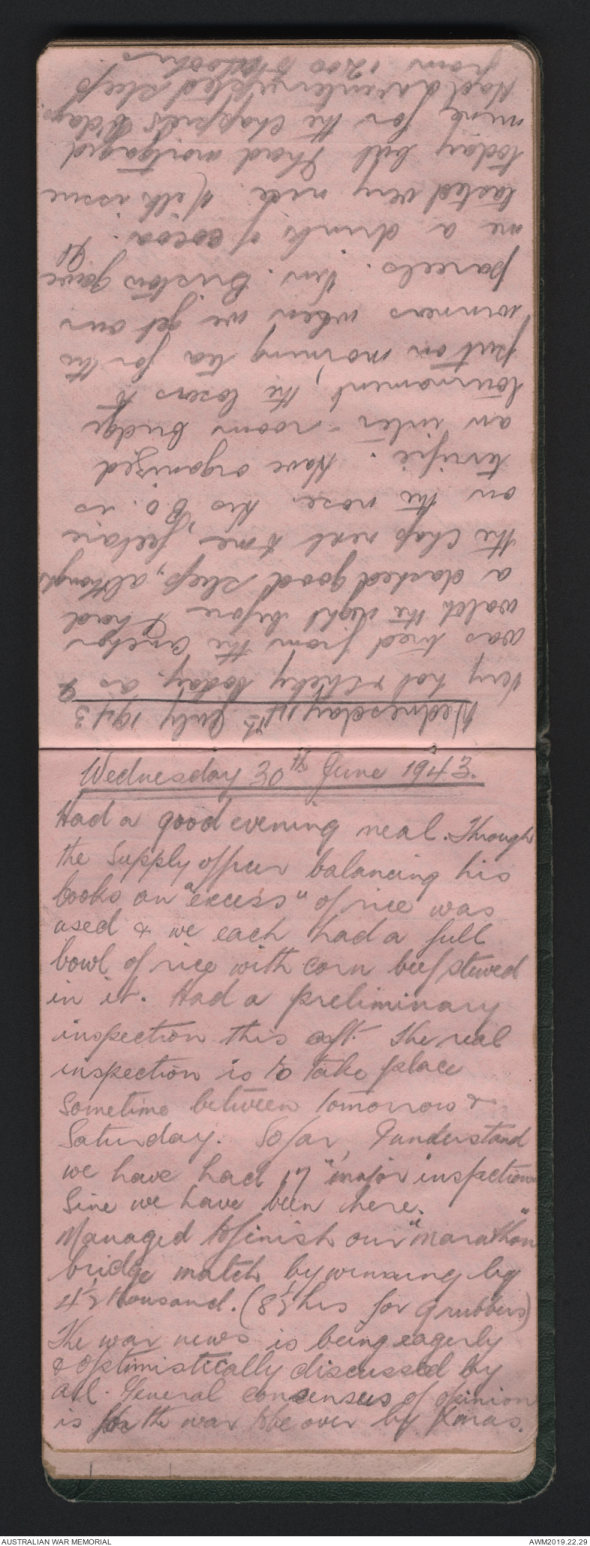 Wednesday 14th July 1943
Very hot & sticky today. as I
was tired from the anchor
watch the night before I had
a dashed good sleep, although
the chap next to me, feelaie
on the nose. His B.O. is
terrific. Have organized
an inter-room bridge
tournament, the losers to
put on morning tea for the
winners when we get our
parcels. Vin. Bristow gave
me a drink of cocoa. It
tasted very nice. Milk issue
today but I had mortgaged
mine for the chappies today.
Had an interrupted sleep
from 1200
Wednesday 30th June 1943.
Had a good evening meal. Through
the supply officer balancing his
books an "excess" of rice was
used & we each had a full
bowl of rice with corn beef stewed
in it. Had a preliminary
inspection this aft. The real
inspection is to take place
sometime between tomorrow &
Saturday. So far I understand
we have had 17 "major" inspections
sine we have been here.
Managed to finish our "marathon"
bridge match, by winning by
4½ thousand. (8½ hrs for 9 rubbers)
The war news is being eagerly
& optimistically discussed by
all. General consensus of opinion
is for the war to be over by Xmas.
AUSTRALIAN WAR MEMORIAL
AWM2019.22.29